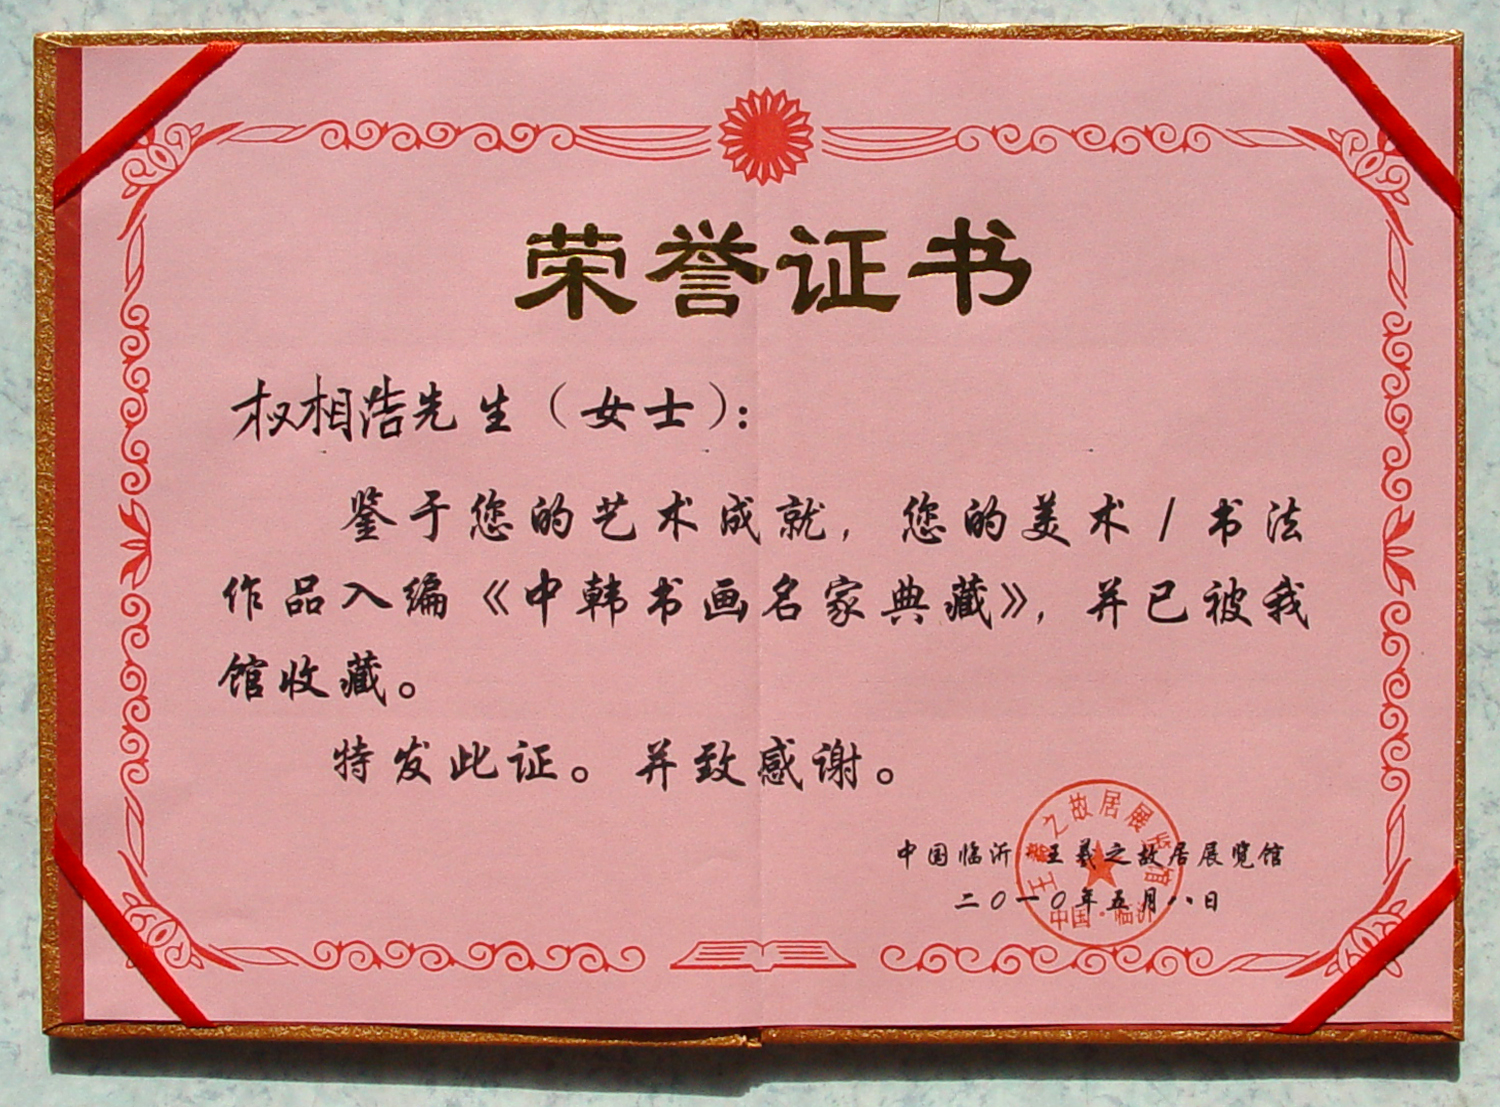 荣誉证书
权相浩先生（女士）：
鉴于您的艺术成就，您的美术/书法
作品入编《中韩书画名家典藏》，并已被我
馆收藏。
特发此证。并致感谢。
中国临沂·王羲之故居展览馆
二〇一〇年五月八日
王羲之故居展览馆
中国·临沂